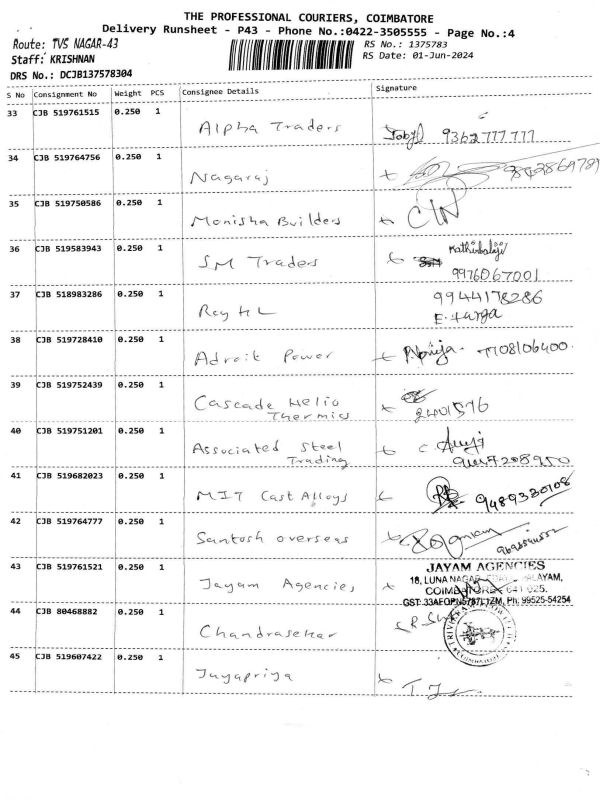 THE PROFESSIONAL COURIERS, COIMBATORE
Delivery Runsheet - P43 - Phone No.:0422-3505555 - Page No.:4
Route: TVS NAGAR-43
RS No.: 1375783
Staff: KRISHNAN
RS Date: 01-Jun-2024
DRS No.: DCJB137578304
S No Consignment No Weight PCS Consignee Details Signature
33 CJB 519761515 0.250 1 Alpha Traders 9362777777
34 CJB 519764756 0.250 1 Nagaraj
35 CJB 519750586 0.250 1 Monisha Builders
36 CJB 519583943 0.250 1 SM Traders 9976067001
37 CJB 518983286 0.250 1 Roy H L 9944178286
38 CJB 519728410 0.250 1 Adroit Power 7708106400
39 CJB 519752439 0.250 1 Cascade Helio
Thermics
40 CJB 519751201 0.250 1 Associated Steel
Trading
41 CJB 519682023 0.250 1 MIT Cast Alloys 9489380108
42 CJB 519764777 0.250 1 Santosh overseas
43 CJB 519761521 0.250 1 Jayam Agencies
JAYAM AGENCIES
18, LUNA NAGAR
COIMBATORE 641 025.
Ph: 99525-54254
44 CJB 80468882 0.250 1 Chandrasekar
45 CJB 519607422 0.250 1 Jayapriya